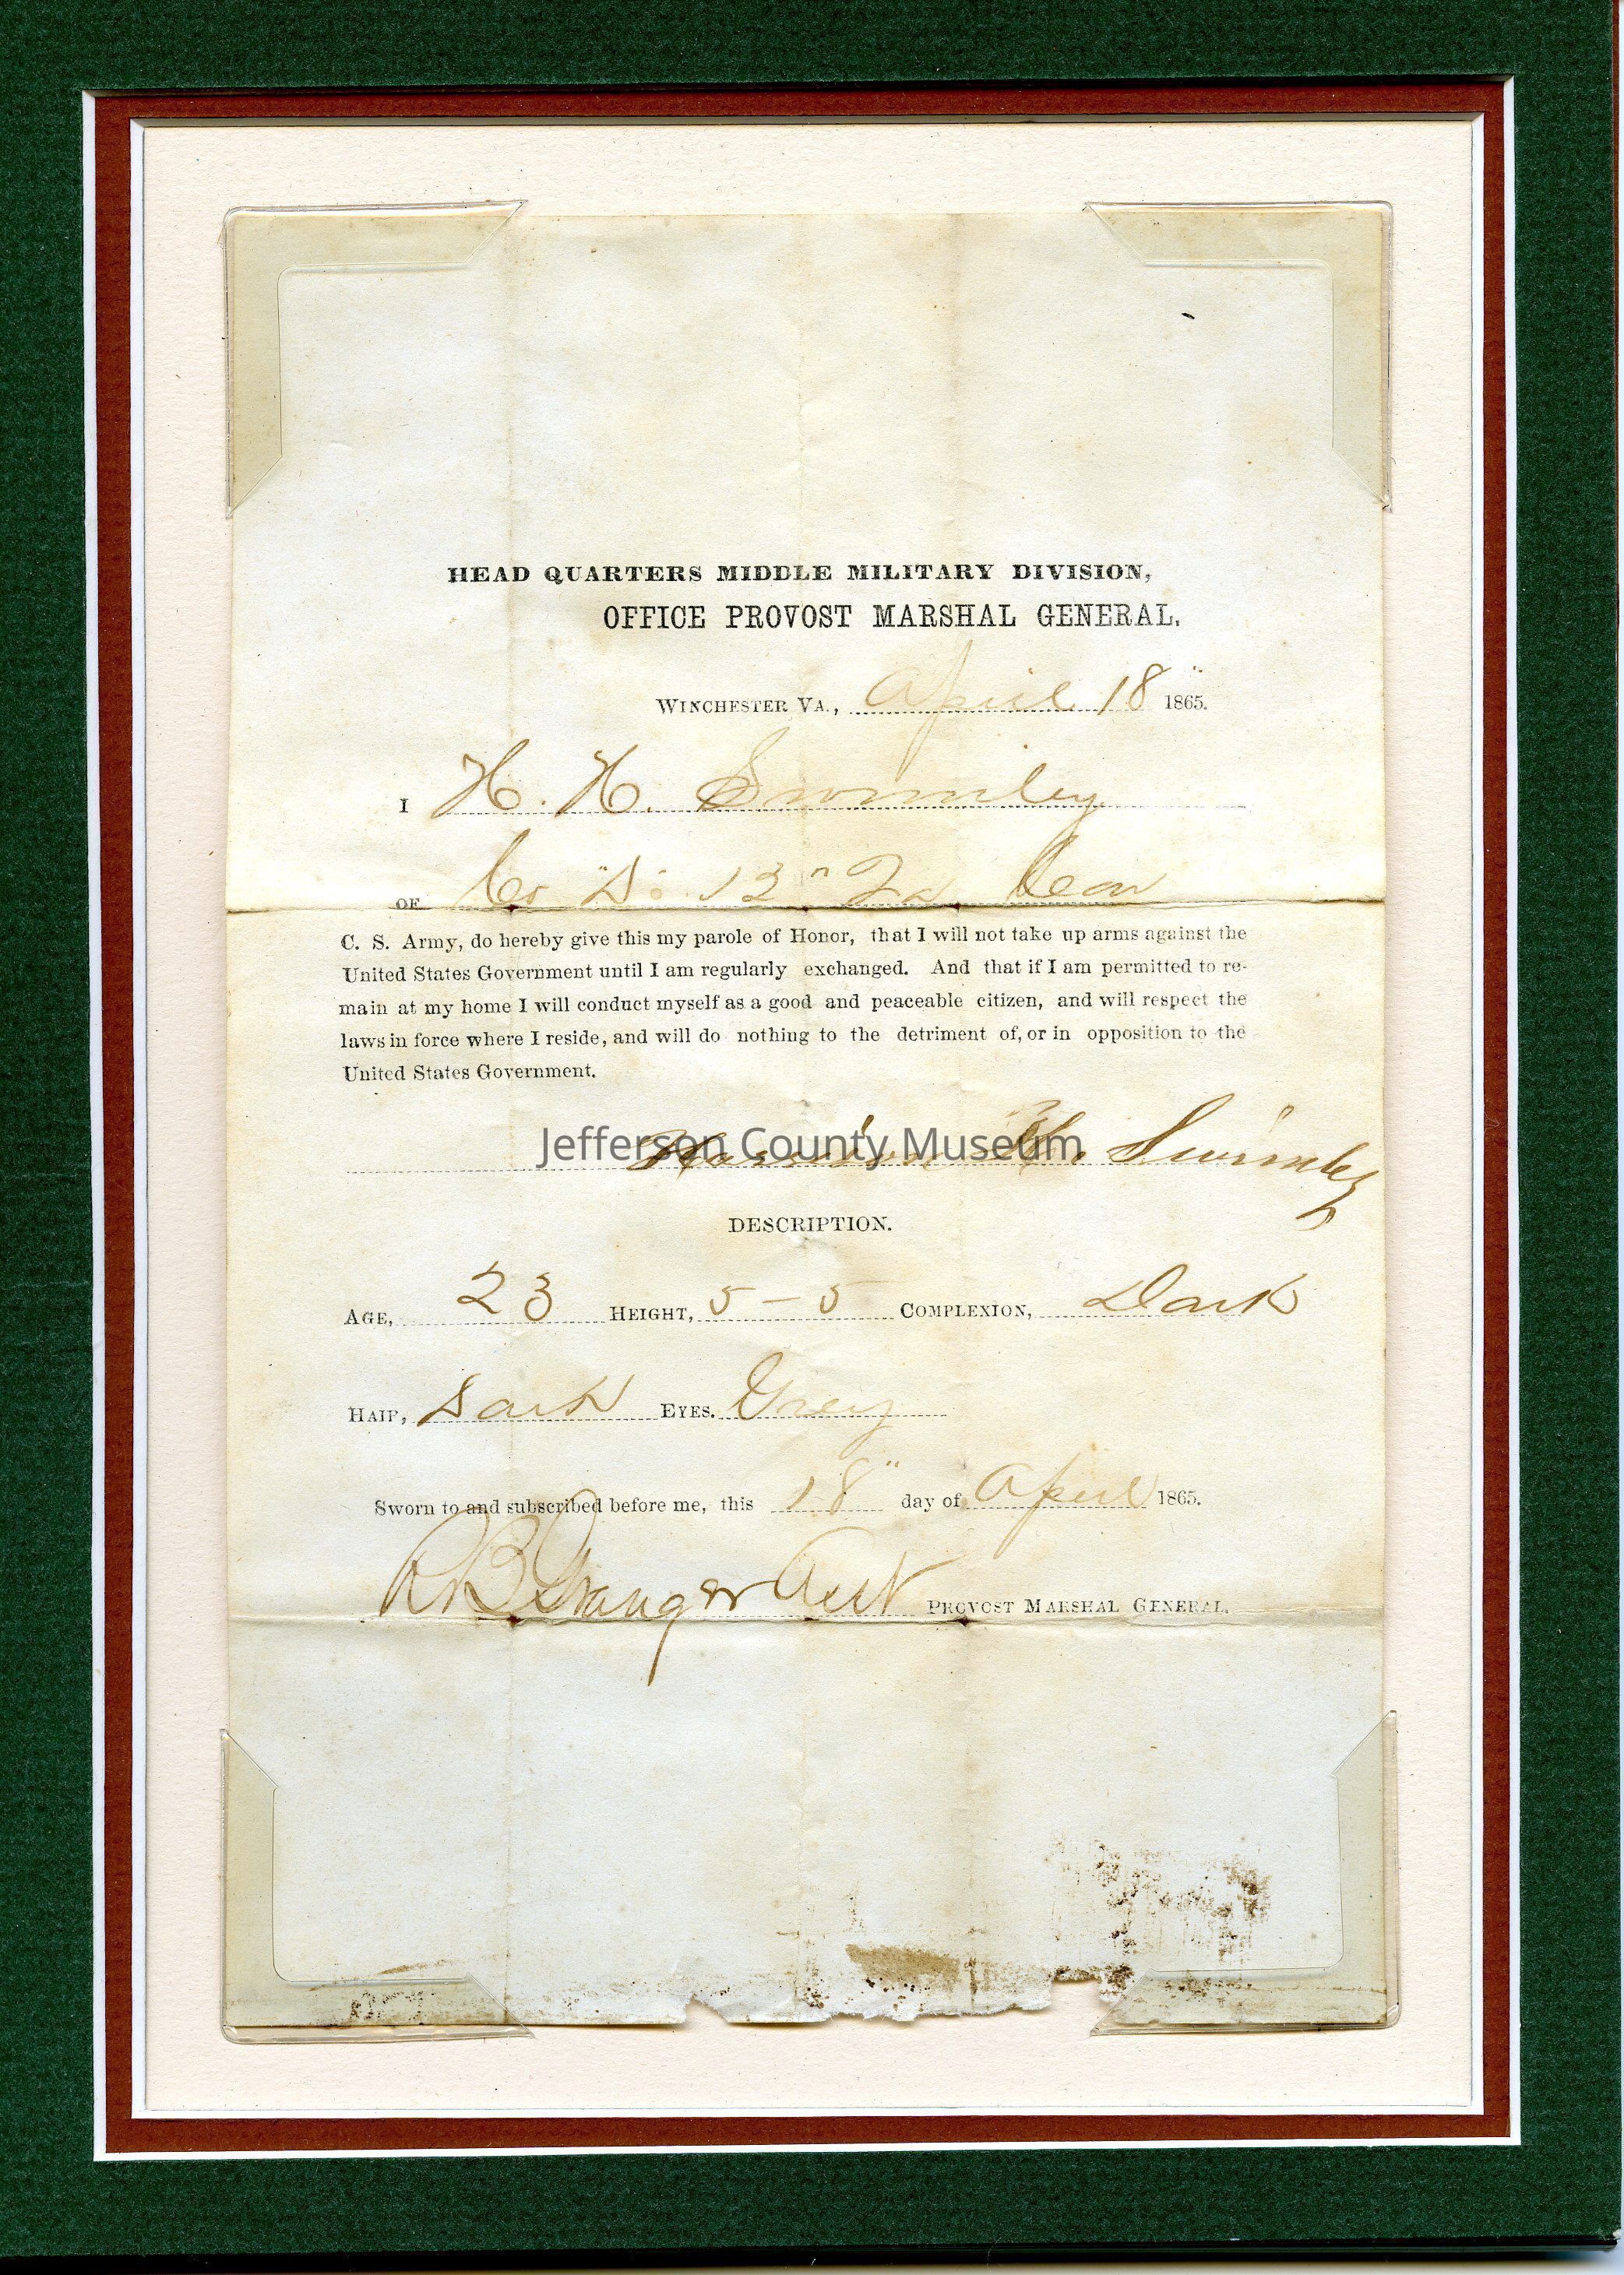 HEAD QUARTERS MIDDLE MILITARY DIVISION,
OFFICE PROVOST MARSHAL GENERAL.
WINCHESTER VA., April 18" 1865.
I H. H. Swimley
OF Co "D" 12" Va Cav
C. S. Army, do hereby give this my parole of Honor, that I will not take up arms against the
United States Government until I am regularly exchanged. And that if I am permitted to re-
main at my home I will conduct myself as a good and peaceable citizen, and will respect the
laws in force where I reside, and will do nothing to the detriment of, or in opposition to the
United States Government.
Harrison H. Swimley
Jefferson County Museum
DESCRIPTION.
AGE, 23 HEIGHT, 5-5 COMPLEXION, Dark
HAIR, Dark EYES. Grey
Sworn to and subscribed before me, this 18" day of April 1865.
Asst PROVOST MARSHAL GENERAL.